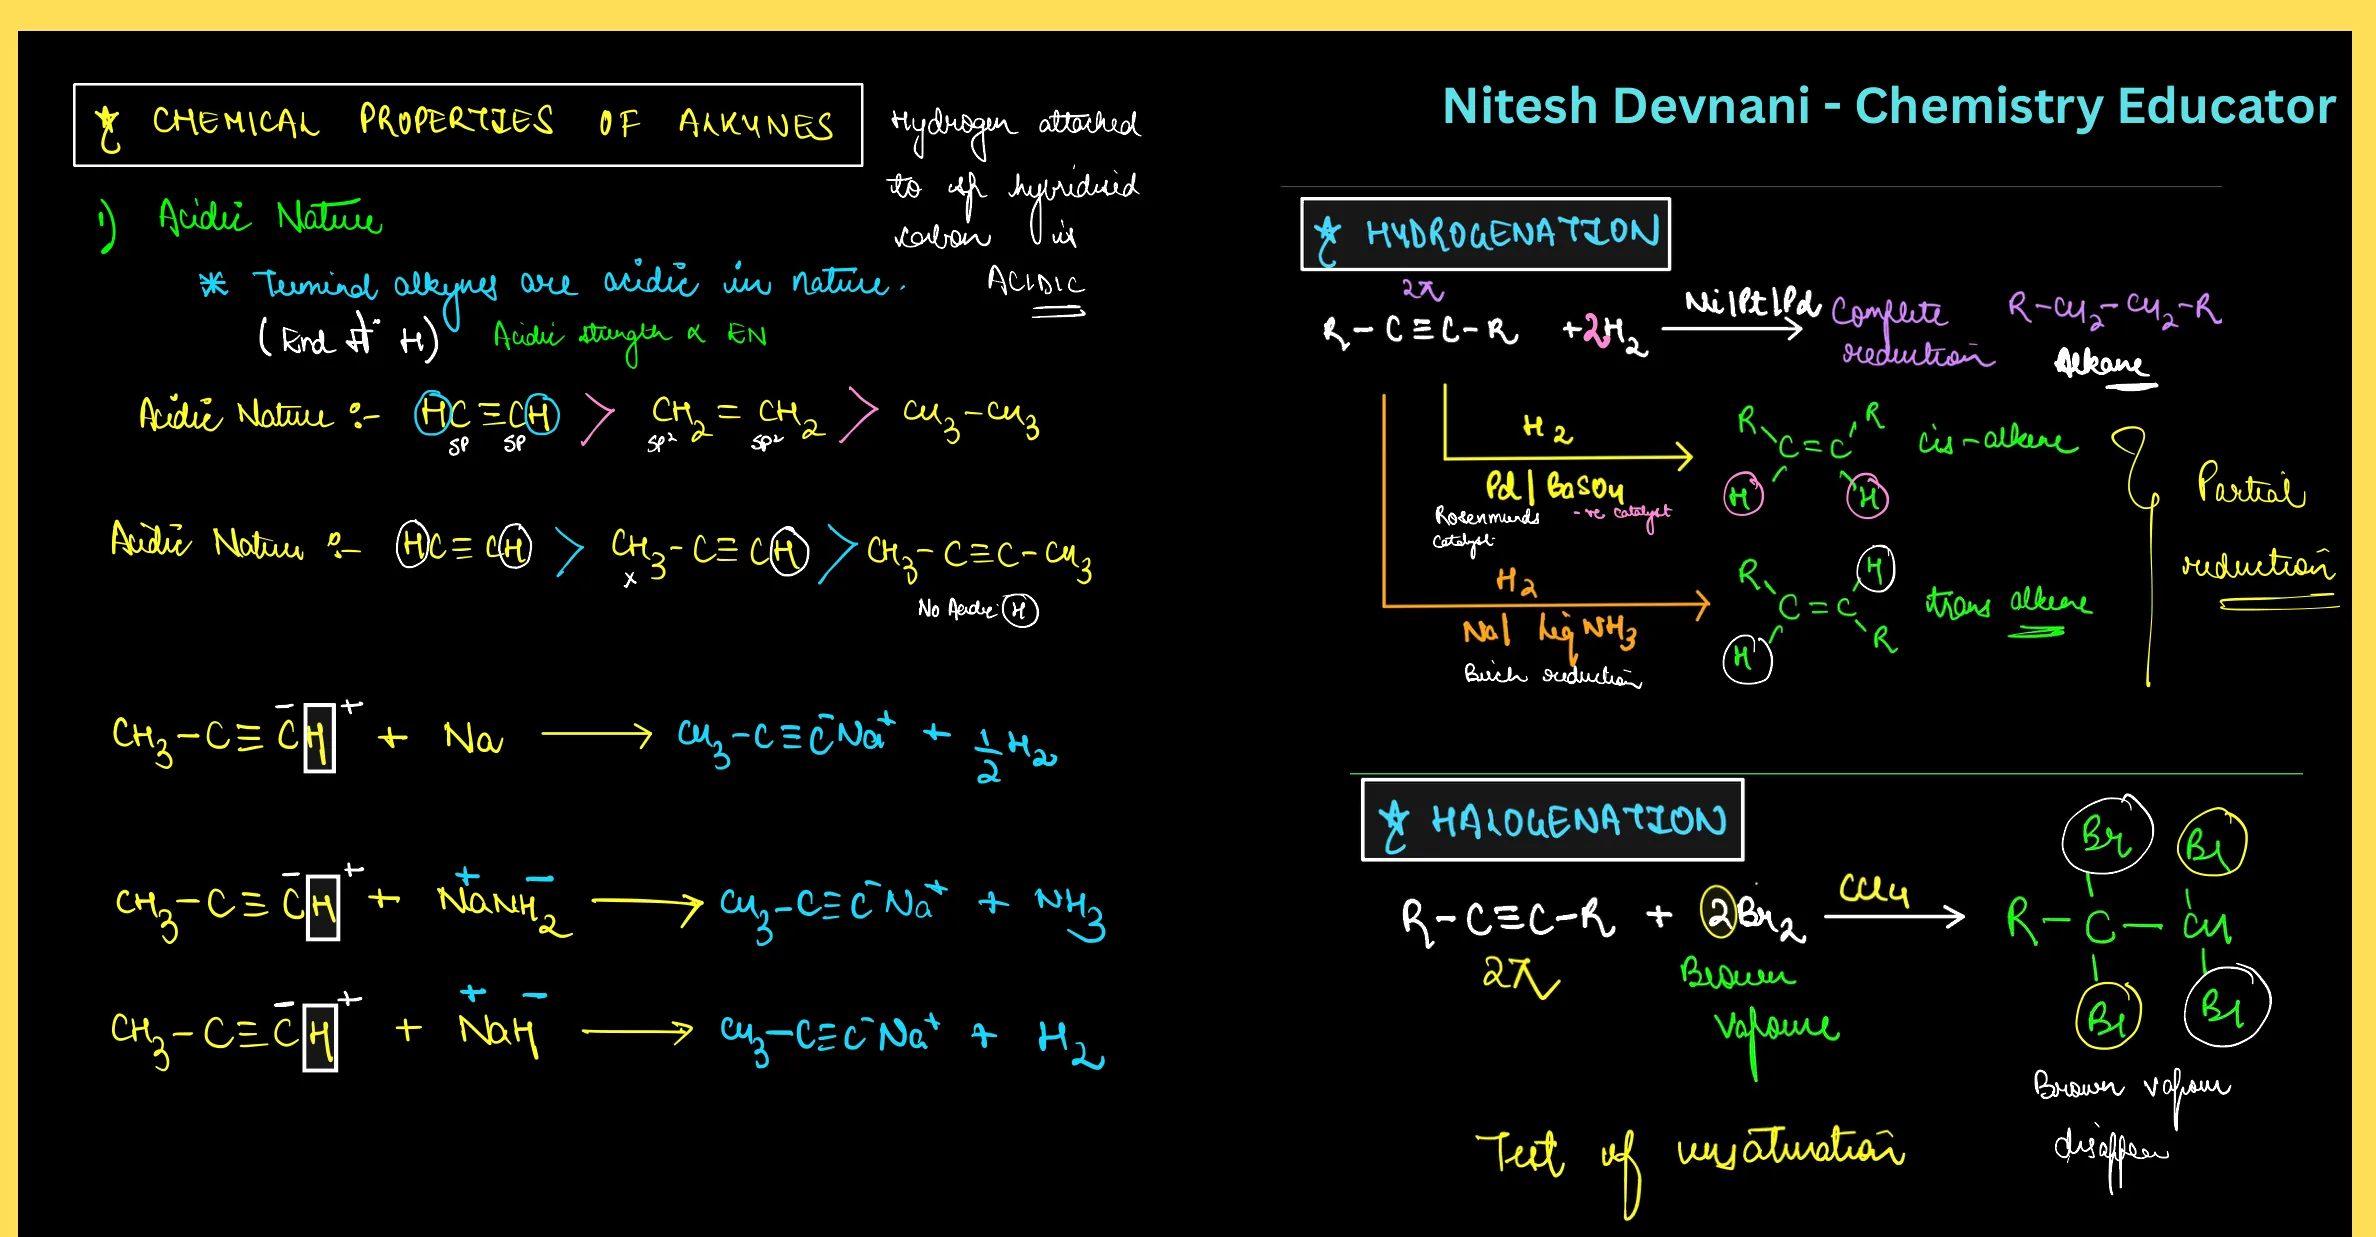 CHEMICAL PROPERTIES OF ALKYNES
Hydrogen attached
to sp hybridised
carbon is
ACIDIC
1) Acidic Nature
* Terminal alkynes are acidic in nature.
(End H)
Acidic strength ∝ EN
Acidic Nature :- HC≡CH > CH2=CH2 > CH3-CH3
sp sp sp² sp²
Acidic Nature :- HC≡CH > CH3-C≡CH > CH3-C≡C-CH3
x
No Acidic H
CH3-C≡C⁻H⁺ + Na → CH3-C≡C⁻Na⁺ + 1/2 H2
CH3-C≡C⁻H⁺ + Na⁺NH2⁻ → CH3-C≡C⁻Na⁺ + NH3
CH3-C≡C⁻H⁺ + Na⁺H⁻ → CH3-C≡C⁻Na⁺ + H2
Nitesh Devnani - Chemistry Educator
HYDROGENATION
2π
R-C≡C-R + 2H2 → Ni|Pt|Pd Complete reduction R-CH2-CH2-R
Alkane
H2
Pd|BaSO4
Rosenmunds catalyst
-ve catalyst
R R
C=C
H H
cis-alkene
H2
Na| liq NH3
Birch reduction
R H
C=C
H R
trans alkene
Partial
reduction
HALOGENATION
R-C≡C-R + 2Br2 → CCl4
2π
Brown
vapours
Br Br
R-C-CH
Br Br
Brown vapour
disappear
Test of unsaturation